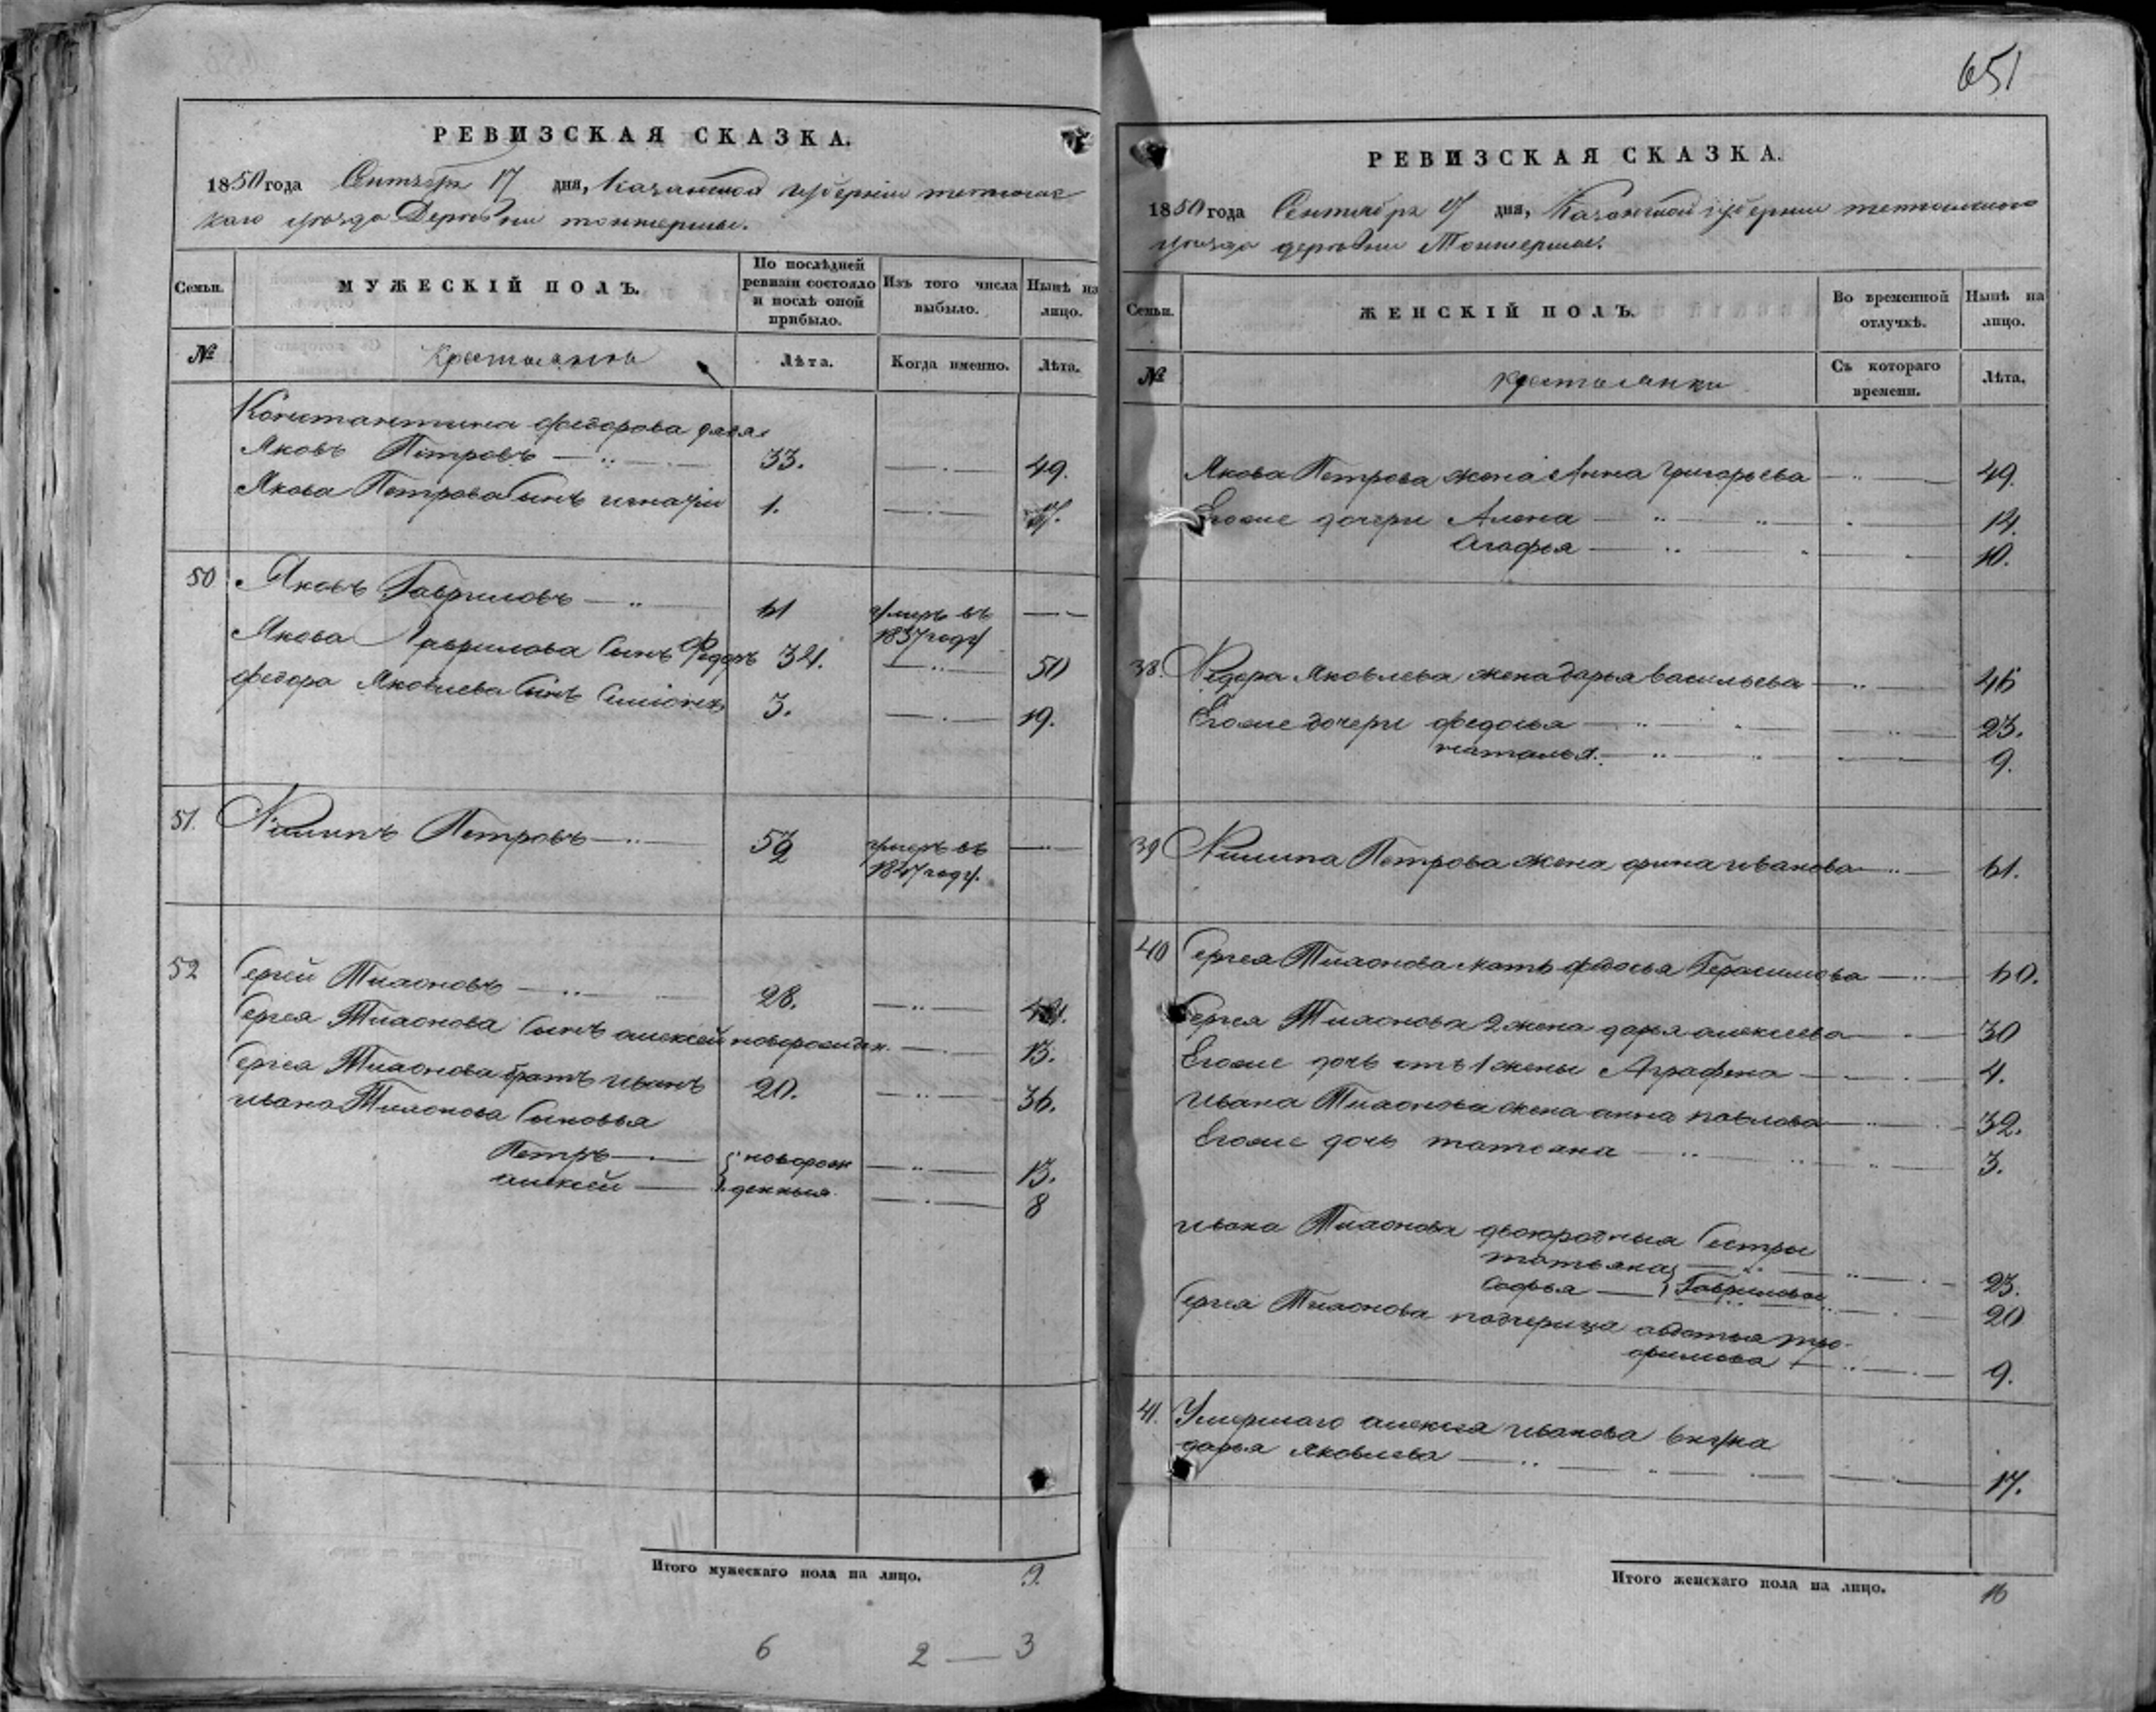 РЕВИЗСКАЯ СКАЗКА.
1850 года Сентября 17 дня, Казанской губернии тетюшс
каго уезда Деревни
Семьи.
МУЖЕСКІЙ ПОЛЪ.
По послѣдней ревизіи состояло и послѣ оной прибыло.
Изъ того числа выбыло.
Нынѣ на лицо.
№
Крестьяне
Лѣта.
Когда именно.
Лѣта.
Константина федорова дядя
Яковъ Петровъ 33. 49.
Якова Петрова Сынъ игнатiй 1. 17.
50 Яковъ Гавриловъ 61 умеръ въ
1837 году
Якова Гаврилова Сынъ Федоръ 34. 50
федора Яковлева Сынъ Симіонъ 3. 19.
51. Филипъ Петровъ 59 умеръ въ
1847 году.
52 Сергей Тихоновъ 28.
Сергея Тихонова Сынъ алексей новорожден. 13.
Сергея Тихонова братъ иванъ 20. 36.
ивана Тихонова Сыновья
Петръ новорож 13.
алексей денныя 8
Итого мужескаго пола на лицо. 9.
6 2 — 3
651
РЕВИЗСКАЯ СКАЗКА.
1850 года Сентября 17 дня, Казанской губернии тетюшского
уезда деревни
Семьи.
ЖЕНСКІЙ ПОЛЪ.
Во временной отлучкѣ.
Нынѣ на лицо.
№
крестьянки
Съ котораго времени.
Лѣта.
Якова Петрова жена Анна григорьева 49.
Егоже дочери Алена 14.
Агафья 10.
38. Федора Яковлева жена дарья васильева 46
Егоже дочери федосья 23.
наталья. 9.
39 Филипа Петрова жена орина иванова 61.
40 Сергея Тихонова мать федосья Герасимова 60.
Сергея Тихонова 2 жена дарья алексеева 30
Егоже дочь отъ 1 жены Аграфена 4.
ивана Тихонова жена анна павлова 32.
Егоже дочь татьяна 3.
ивана Тихонова двоюродныя Сестры
татьяна 23.
Софья Гавриловы 20
Сергея Тихонова падчерица авдотья тро-
фимова 9.
41. Умершаго алексея иванова внука
дарья яковлева 17.
Итого женскаго пола на лицо. 16